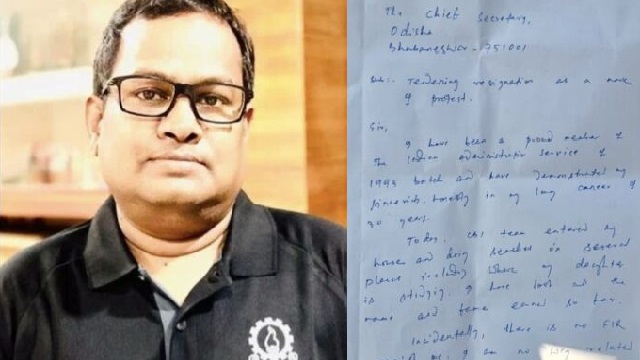 The Chief Secretary,
Odisha
Bhubaneswar - 751001
Sub:- Tendering resignation as a mark
of protest.
Sir,
I have been a proud member of
The Indian administrative service of
1995 batch and have demonstrated my
sincerity honesty in my long career of
30 years.
Today CBI team entered my
house and doing searches in several
places including where my daughter
is studying. I have lost all the
name and fame earned so far.
Incidentally, there is no FIR
I am no way related